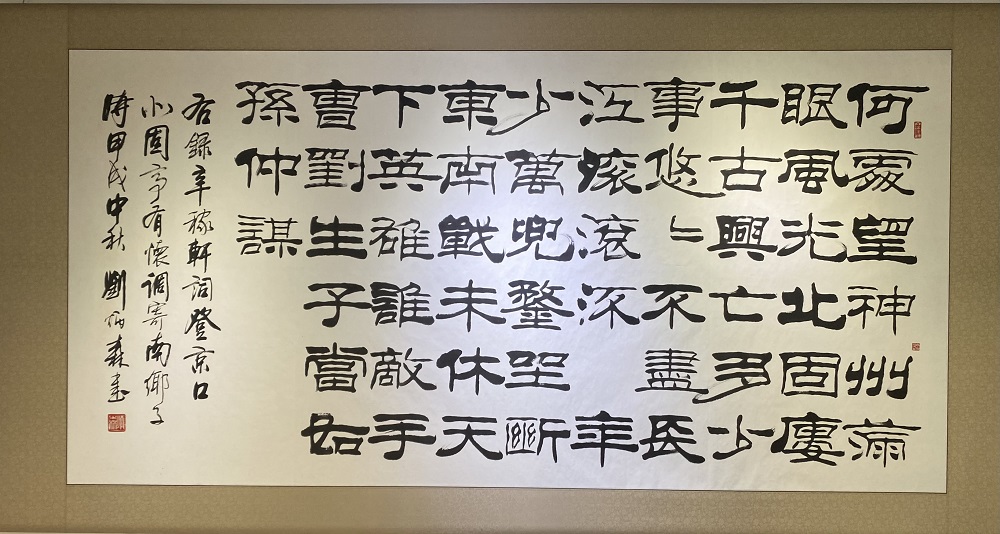 何處望神州滿
眼風光北固廔
千古興亡多少
事悠〻不盡長
江滾滾流 年
少萬兜鍪坐斷
東南戰未休天
下英雄誰敵手
曹劉生子當如
孫仲謀
右錄辛稼軒詞登京口
北固亭有懷調寄南鄉子
時甲戌中秋劉炳森書